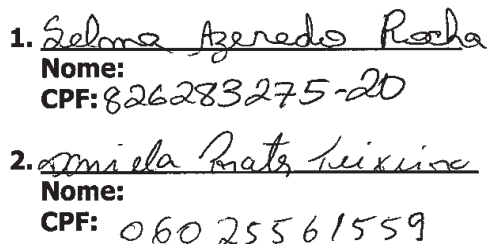 1. Selma Azeredo Rocha
Nome:
CPF: 826283275-20
2. Daniela Prats Teixeira
Nome:
CPF: 06025561559